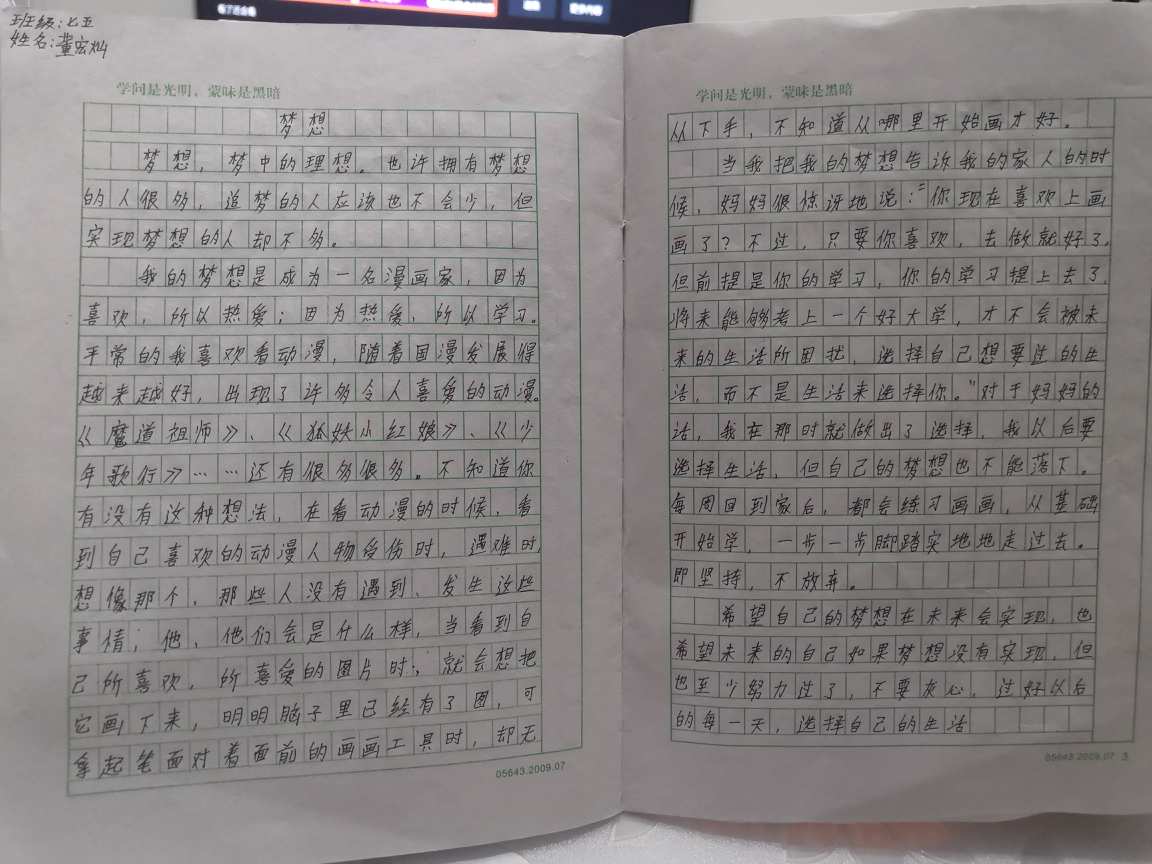 班级:七五
姓名:董宏灿
学问是光明，蒙昧是黑暗
梦想
梦想，梦中的理想。也许拥有梦想
的人很多，追梦的人应该也不会少，但
实现梦想的人却不多。
我的梦想是成为一名漫画家，因为
喜欢，所以热爱；因为热爱，所以学习。
平常的我喜欢看动漫，随着国漫发展得
越来越好，出现了许多令人喜爱的动漫。
《魔道祖师》、《狐妖小红娘》、《少
年歌行》……还有很多很多。不知道你
有没有这种想法，在看动漫的时候，看
到自己喜欢的动漫人物受伤时，遇难时，
想像那个、那些人没有遇到、发生这些
事情；他、他们会是什么样，当看到自
己所喜欢，所喜爱的图片时；就会想把
它画下来，明明脑子里已经有了图，可
拿起笔面对着面前的画画工具时，却无
05643.2009.07
学问是光明，蒙昧是黑暗
从下手，不知道从哪里开始画才好。
当我把我的梦想告诉我的家人的时
候，妈妈很惊讶地说："你现在喜欢上画
画了？不过，只要你喜欢，去做就好了，
但前提是你的学习，你的学习提上去了，
将来能够考上一个好大学，才不会被未
来的生活所困扰，选择自己想要过的生
活，而不是生活来选择你。"对于妈妈的
话，我在那时就做出了选择，我以后要
选择生活，但自己的梦想也不能落下。
每周回到家后，都会练习画画，从基础
开始学，一步一步脚踏实地地走过去。
即坚持，不放弃。
希望自己的梦想在未来会实现，也
希望未来的自己如果梦想没有实现，但
也至少努力过了，不要灰心，过好以后
的每一天，选择自己的生活
05643.2009.07 3